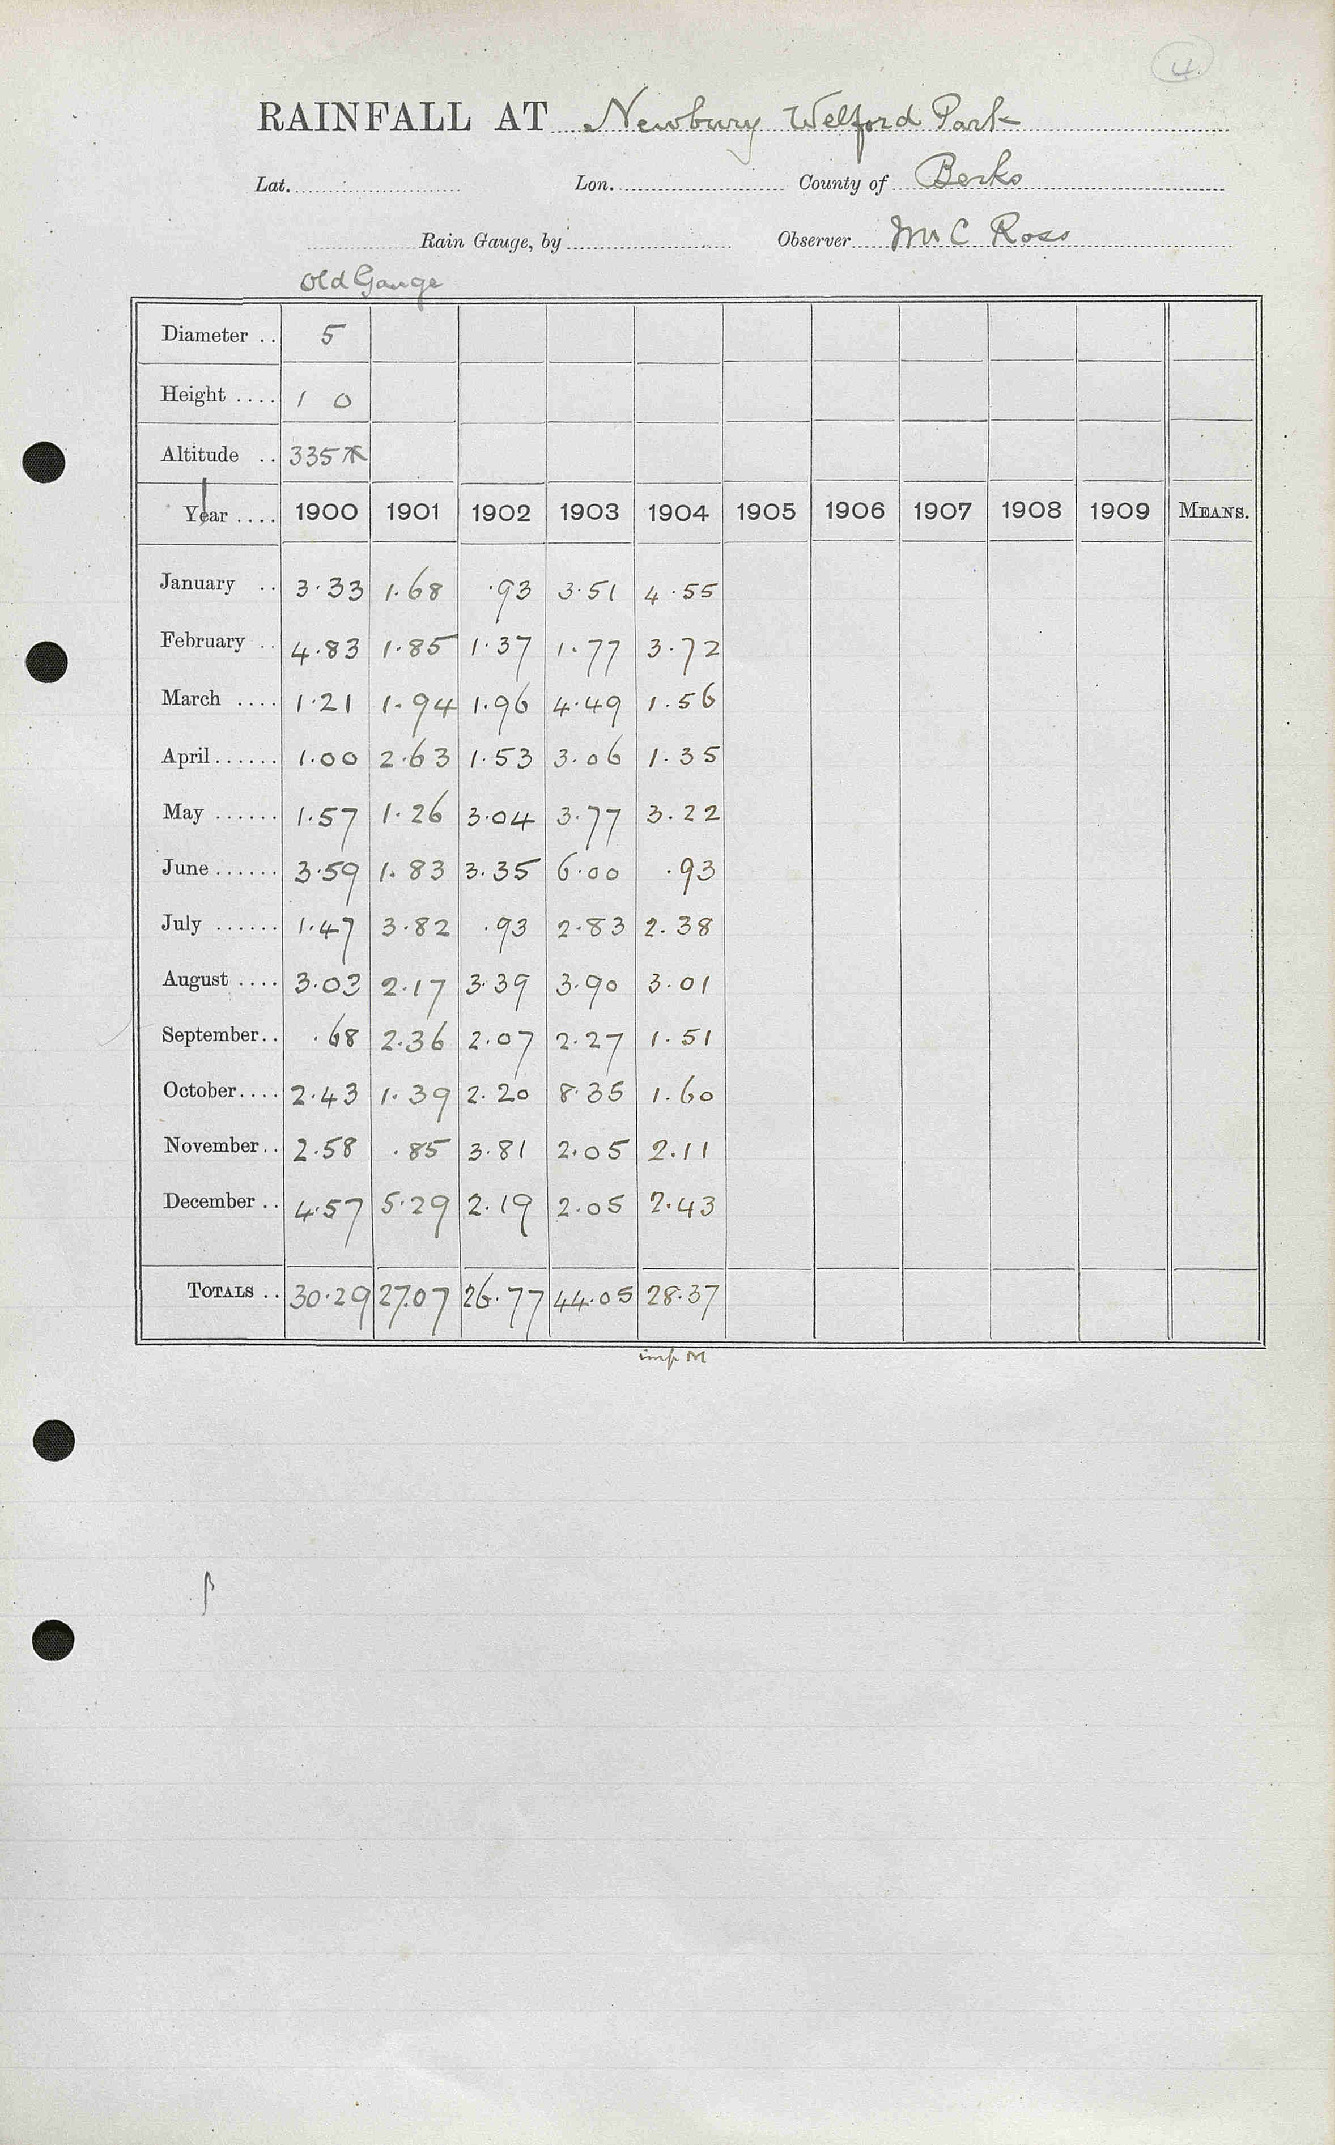 4
RAINFALL AT Newbury Welford Park
Lat. Lon. County of Berks
Rain Gauge, by Observer Mr C Ross
Old Gauge
Diameter .. 5
Height .... 1 0
Altitude .. 335
Year .... 1900 1901 1902 1903 1904 1905 1906 1907 1908 1909 MEANS.
January .. 3.33 1.68 .93 3.51 4.55
February .. 4.83 1.85 1.37 1.77 3.72
March .... 1.21 1.94 1.96 4.49 1.56
April...... 1.00 2.63 1.53 3.06 1.35
May ...... 1.57 1.26 3.04 3.77 3.22
June...... 3.59 1.83 3.35 6.00 .93
July ...... 1.47 3.82 .93 2.83 2.38
August .... 3.03 2.17 3.39 3.90 3.01
September.. .68 2.36 2.07 2.27 1.51
October.... 2.43 1.39 2.20 8.35 1.60
November.. 2.58 .85 3.81 2.05 2.11
December .. 4.57 5.29 2.19 2.05 2.43
TOTALS .. 30.29 27.07 26.77 44.05 28.37